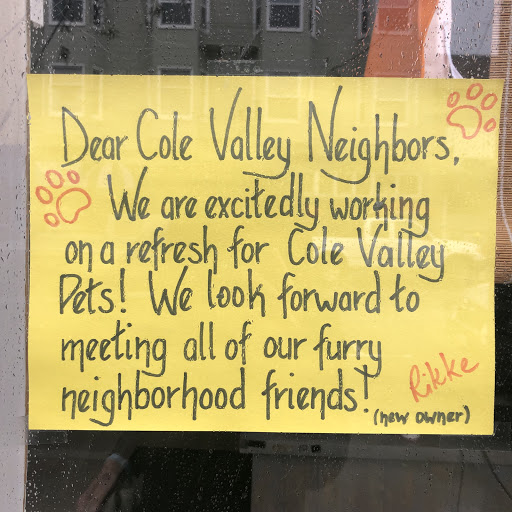 Dear Cole Valley Neighbors,
We are excitedly working
on a refresh for Cole Valley
Pets! We look forward to
meeting all of our furry
neighborhood friends!
Rikke
(new owner)